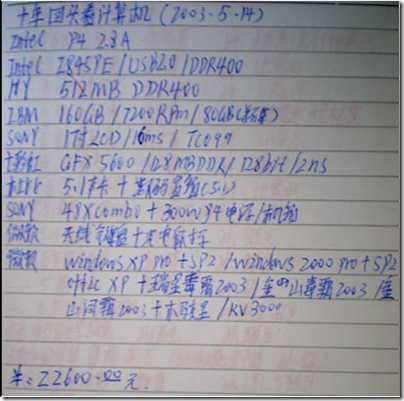 十年回头看计算机 (2003.5.14)
Intel P4 2.8A
Intel I845PE/USB2.0/DDR400
HY 512MB DDR400
IBM 160GB/7200RPM/80GB()
SONY 17寸LCD/16ms/TCO99
七彩虹 GFX 5600/128MBDDR/128bit/2ns
5.1声卡+音箱(5.1)
SONY 48Xcombo+300W P4电源/机箱
微软 无线键盘+光电鼠标
微软 windows XP pro+SP2/windows 2000 pro+SP2
office XP+瑞星毒霸2003/金山毒霸2003/金
山词霸2003+木联星/KV3000
¥:22600.00元.